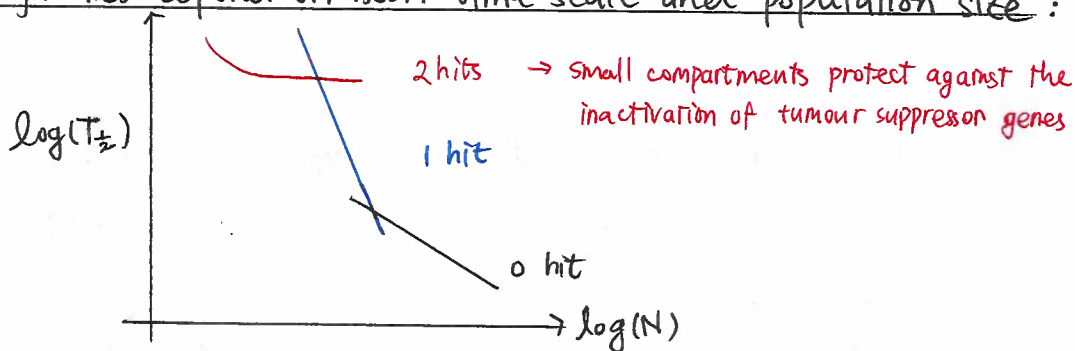 depend on both time scale and population size :
2 hits → small compartments protect against the
inactivation of tumour suppressor genes
log(T½)
1 hit
0 hit
log(N)